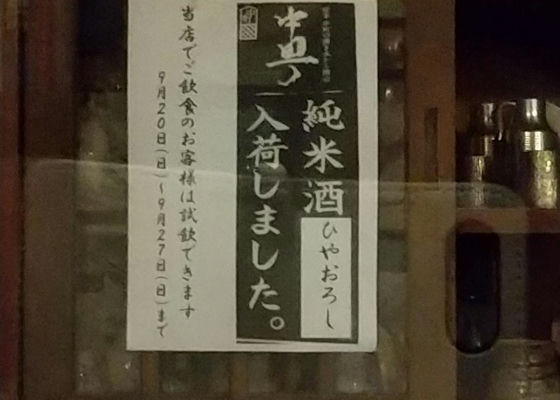 純米酒
ひやおろし
入荷しました。
当店でご飲食のお客様は試飲できます
9月20日(日)~9月27日(日)まで